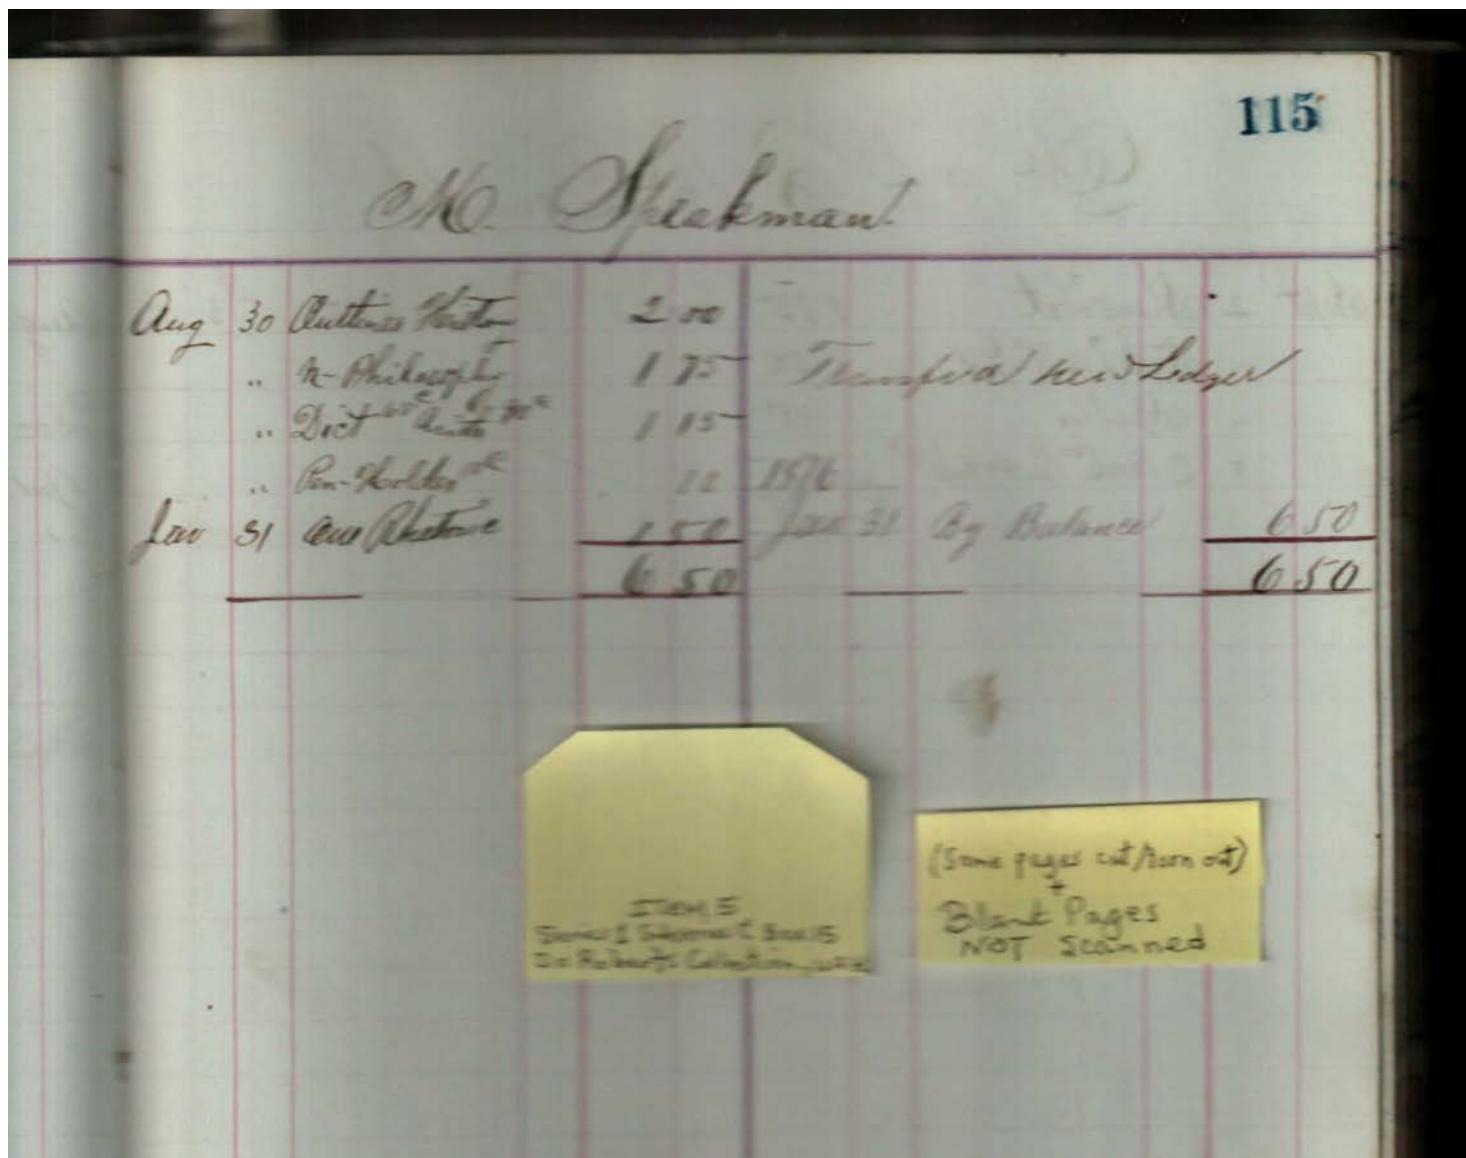 115
M. Speakman.
Aug 30 Outlines Histo 2 00
" N- Philosophy 1 75 Transf'd New Ledger
" Dict 1 15
" Pen-Holder 10 1876
Jan 31 One Rhetoric 1 50 Jan 31 By Balance 6 50
6 50 6 50
Item 5
Series I Subseries C Box 15
Dr Roberts Collection,
(Some pages cut/torn out)
+
Blank Pages
NOT Scanned